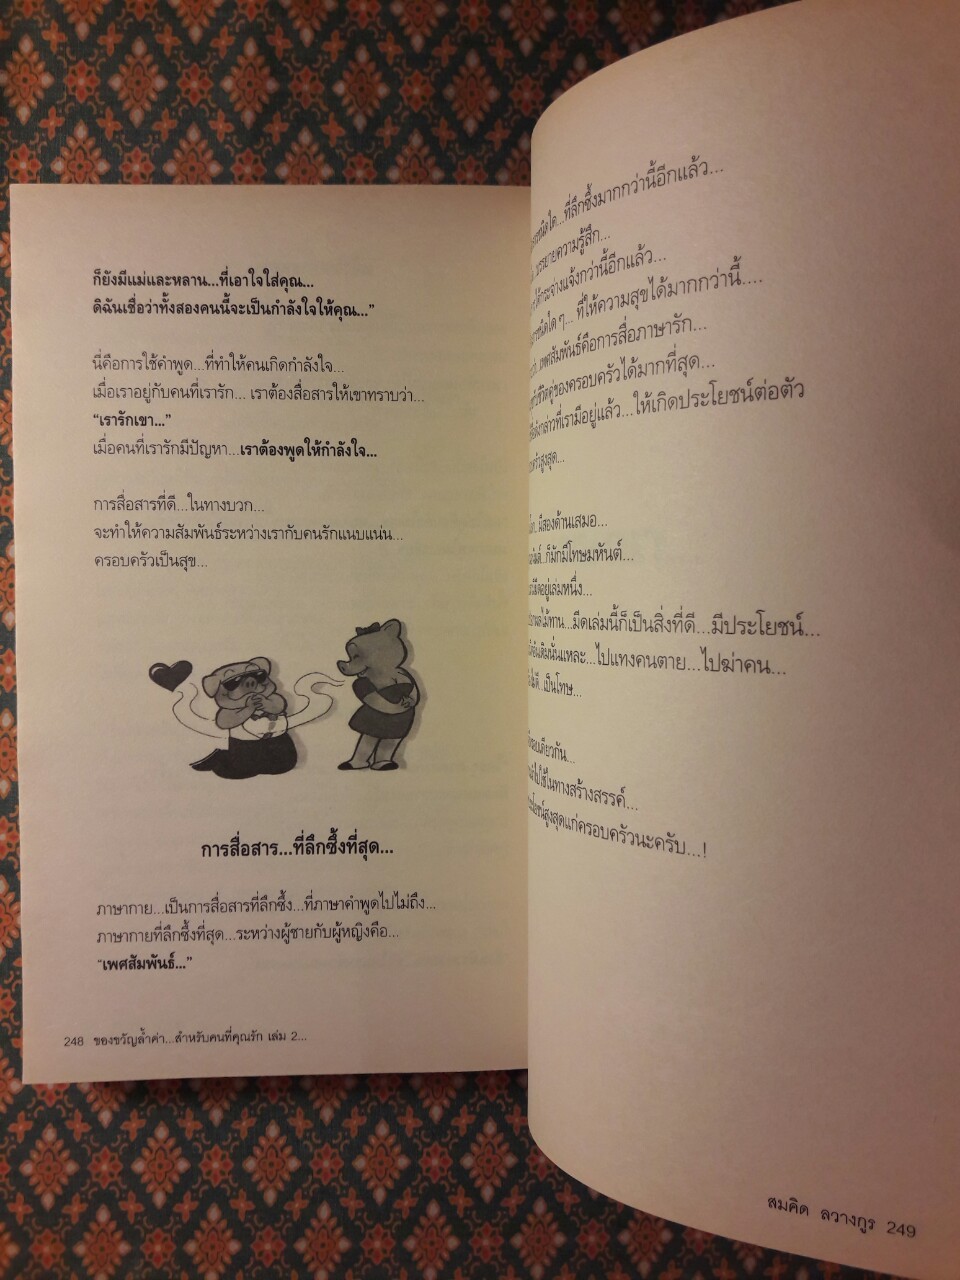 ก็ยังมีแม่และหลาน...ที่เอาใจใส่คุณ...
ดิฉันเชื่อว่าทั้งสองคนนี้จะเป็นกำลังใจให้คุณ..."
นี่คือการใช้คำพูด...ที่ทำให้คนเกิดกำลังใจ...
เมื่อเราอยู่กับคนที่เรารัก... เราต้องสื่อสารให้เขาทราบว่า...
"เรารักเขา..."
เมื่อคนที่เรารักมีปัญหา...เราต้องพูดให้กำลังใจ...
การสื่อสารที่ดี...ในทางบวก...
จะทำให้ความสัมพันธ์ระหว่างเรากับคนรักแนบแน่น...
ครอบครัวเป็นสุข...
การสื่อสาร...ที่ลึกซึ้งที่สุด...
ภาษากาย...เป็นการสื่อสารที่ลึกซึ้ง...ที่ภาษาคำพูดไปไม่ถึง...
ภาษากายที่ลึกซึ้งที่สุด...ระหว่างผู้ชายกับผู้หญิงคือ...
"เพศสัมพันธ์..."
248 ของขวัญล้ำค่า...สำหรับคนที่คุณรัก เล่ม 2...
ชนิดใด...ที่ลึกซึ้งมากกว่านี้อีกแล้ว...
บรรยายความรู้สึก...
ได้กระจ่างแจ้งกว่านี้อีกแล้ว...
ชนิดใด ๆ... ที่ให้ความสุขได้มากกว่านี้....
เพศสัมพันธ์คือการสื่อภาษารัก...
ชีวิตคู่ของครอบครัวได้มากที่สุด...
ดังกล่าวที่เรามีอยู่แล้ว...ให้เกิดประโยชน์ต่อตัว
สูงสุด...
มีสองด้านเสมอ...
ก็มักมีโทษมหันต์...
มีดอยู่เล่มหนึ่ง...
ผลไม้ทาน...มีดเล่มนี้ก็เป็นสิ่งที่ดี...มีประโยชน์...
อันเดิมนั่นแหละ...ไปแทงคนตาย...ไปฆ่าคน...
ไม่ดี...เป็นโทษ...
เดียวกัน...
ไปใช้ในทางสร้างสรรค์...
ประโยชน์สูงสุดแก่ครอบครัวนะครับ...!
สมคิด ลวางกูร 249